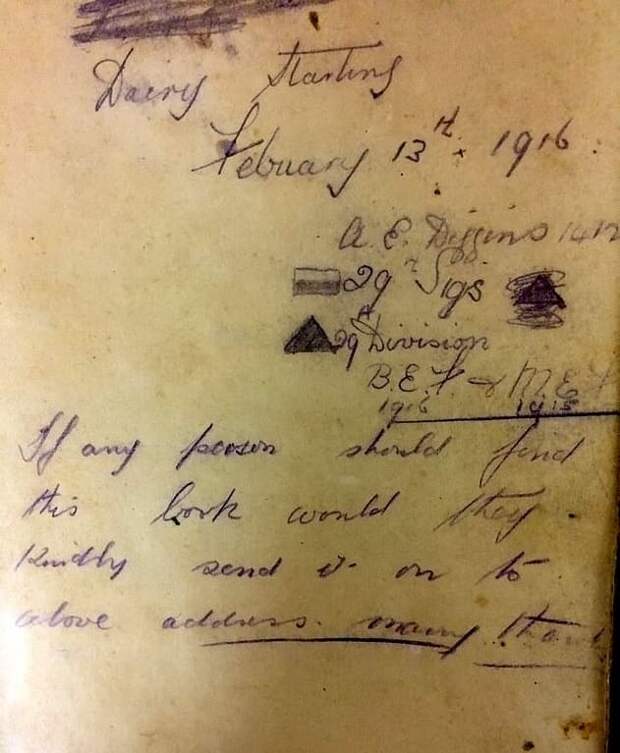 Dairy Starting
Febuary 13th 1916
A. E. Diggins
29 Sigs
29th Division
B.E.F & M.E.F
1916 1915
If any person should find
this book would they
Kindly send it on to
above address. many thanks